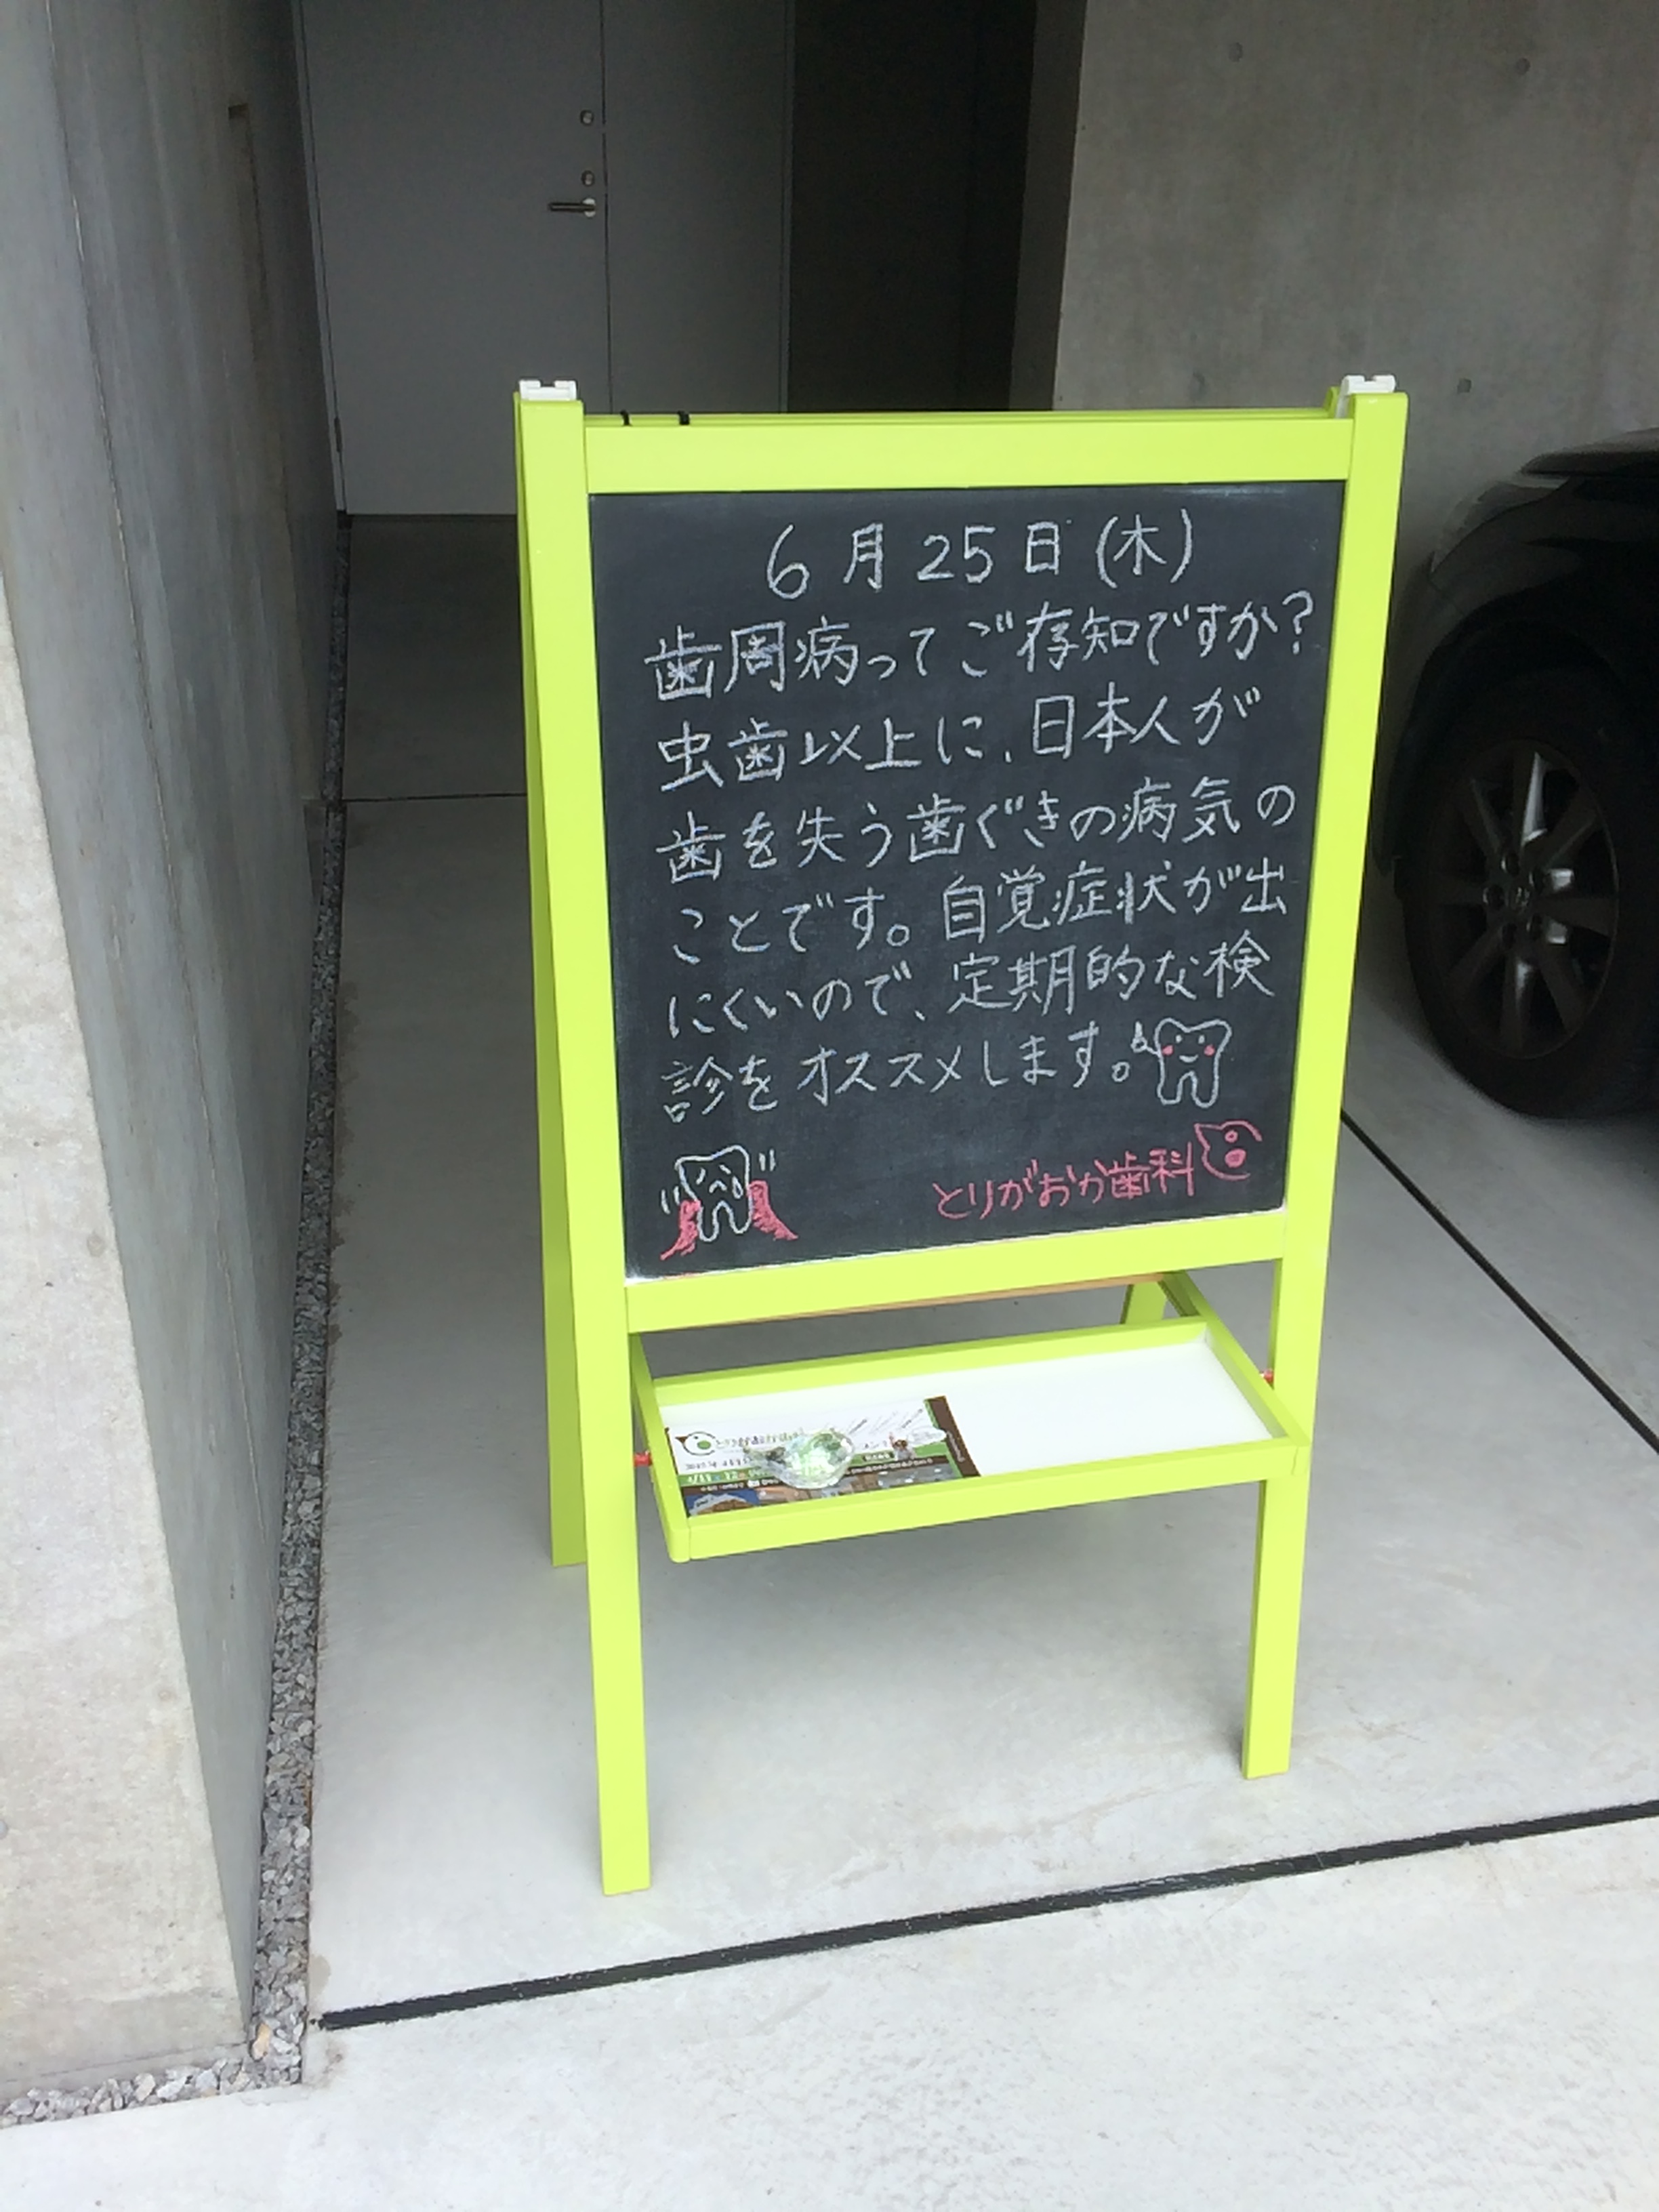 6月25日(木)
歯周病ってご存知ですか?
虫歯以上に、日本人が
歯を失う歯ぐきの病気の
ことです。自覚症状が出
にくいので、定期的な検
診をオススメします。
とりがおか歯科